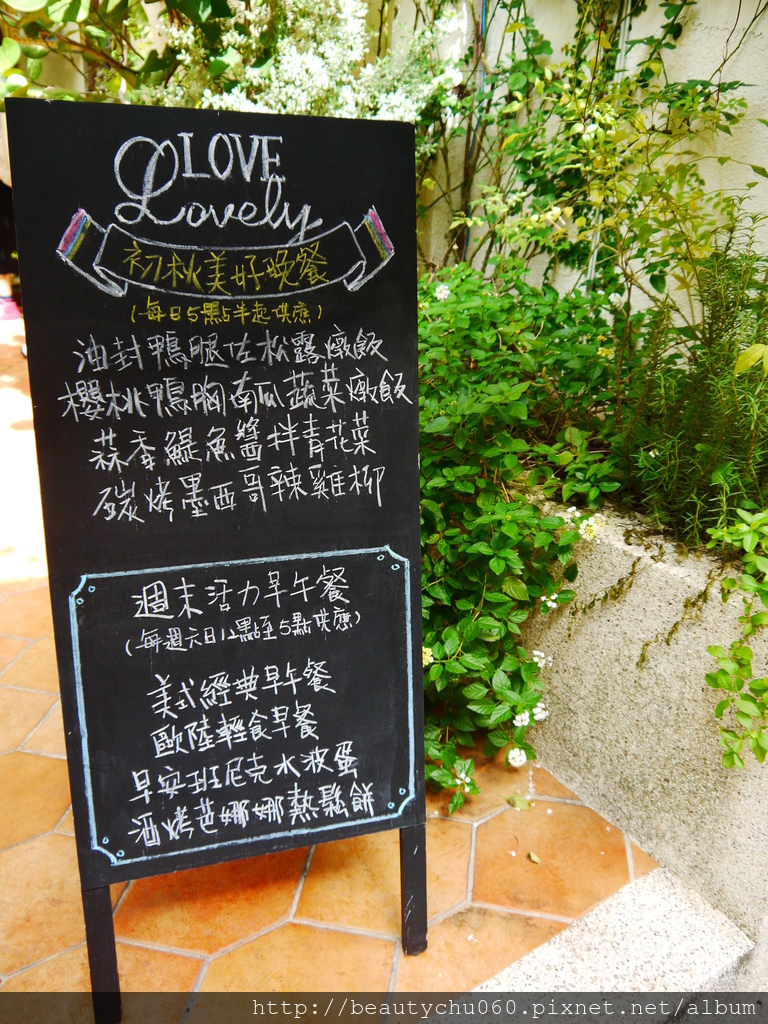 LOVE
Lovely
初秋美好晚餐
(每日5點半起供應)
油封鴨腿佐松露燉飯
櫻桃鴨胸南瓜蔬菜燉飯
蒜香鯷魚醬拌青花菜
碳烤墨西哥辣雞柳
週末活力早午餐
(每週六日12點至5點供應)
美式經典早午餐
歐陸輕食早餐
早安班尼克水波蛋
酒烤芭娜娜熱鬆餅
http://beautychu060.pixnet.net/album